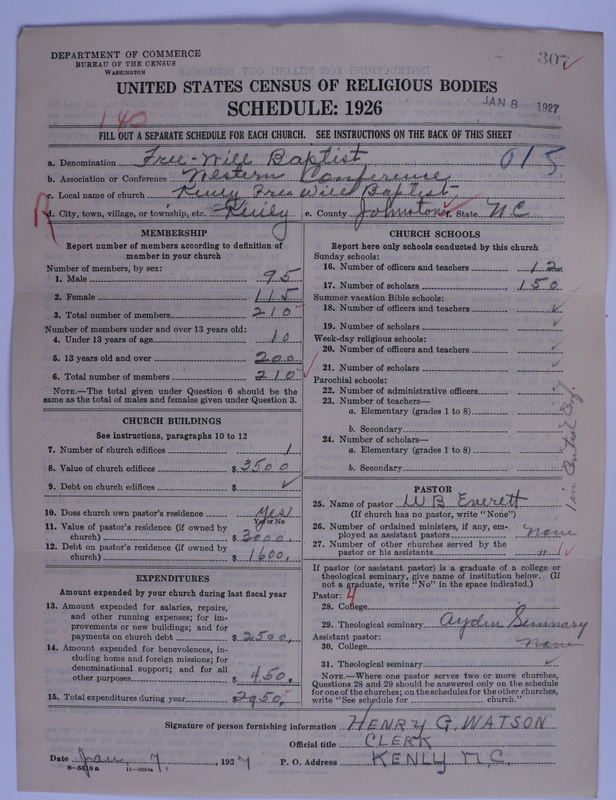 DEPARTMENT OF COMMERCE
BUREAU OF THE CENSUS
WASHINGTON
307
UNITED STATES CENSUS OF RELIGIOUS BODIES
SCHEDULE: 1926
JAN 8 1927
140
FILL OUT A SEPARATE SCHEDULE FOR EACH CHURCH. SEE INSTRUCTIONS ON THE BACK OF THIS SHEET
a. Denomination Free-Will Baptist
015
b. Association or Conference Western Conference
c. Local name of church Kenly Free Will Baptist
R
d. City, town, village, or township, etc. Kenly e. County Johnston f. State N.C
MEMBERSHIP
Report number of members according to definition of member in your church
Number of members, by sex:
1. Male 95
2. Female 115
3. Total number of members 210
Number of members under and over 13 years old:
4. Under 13 years of age 10
5. 13 years old and over 200
6. Total number of members 210
NOTE.—The total given under Question 6 should be the
same as the total of males and females given under Question 3.
CHURCH BUILDINGS
See instructions, paragraphs 10 to 12
7. Number of church edifices 1
8. Value of church edifices $3500
9. Debt on church edifices $
10. Does church own pastor's residence Yes
Yes or No
11. Value of pastor's residence (if owned by
church) $3000.
12. Debt on pastor's residence (if owned by
church) $1600.
EXPENDITURES
Amount expended by your church during last fiscal year
13. Amount expended for salaries, repairs,
and other running expenses; for im-
provements or new buildings; and for
payments on church debt $2500.
14. Amount expended for benevolences, in-
cluding home and foreign missions; for
denominational support; and for all
other purposes $450.
15. Total expenditures during year $2950.
CHURCH SCHOOLS
Report here only schools conducted by this church
Sunday schools:
16. Number of officers and teachers 12
17. Number of scholars 150
Summer vacation Bible schools:
18. Number of officers and teachers
19. Number of scholars
Week-day religious schools:
20. Number of officers and teachers
21. Number of scholars
Parochial schools:
22. Number of administrative officers
23. Number of teachers—
a. Elementary (grades 1 to 8)
b. Secondary
24. Number of scholars—
a. Elementary (grades 1 to 8)
b. Secondary
PASTOR
25. Name of pastor W B Everett
(If church has no pastor, write "None")
26. Number of ordained ministers, if any, em-
ployed as assistant pastors None
27. Number of other churches served by the
pastor or his assistants " 1
If pastor (or assistant pastor) is a graduate of a college or
theological seminary, give name of institution below. (If
not a graduate, write "No" in the space indicated.)
Pastor: 4
28. College
29. Theological seminary Ayden Seminary
Assistant pastor:
30. College None
31. Theological seminary
NOTE.—Where one pastor serves two or more churches,
Questions 28 and 29 should be answered only on the schedule
for one of the churches; on the schedules for the other churches,
write "See schedule for church."
Signature of person furnishing information HENRY G. WATSON
Official title CLERK
Date Jan, 7, 1927 P. O. Address KENLY N.C.
8-5518a